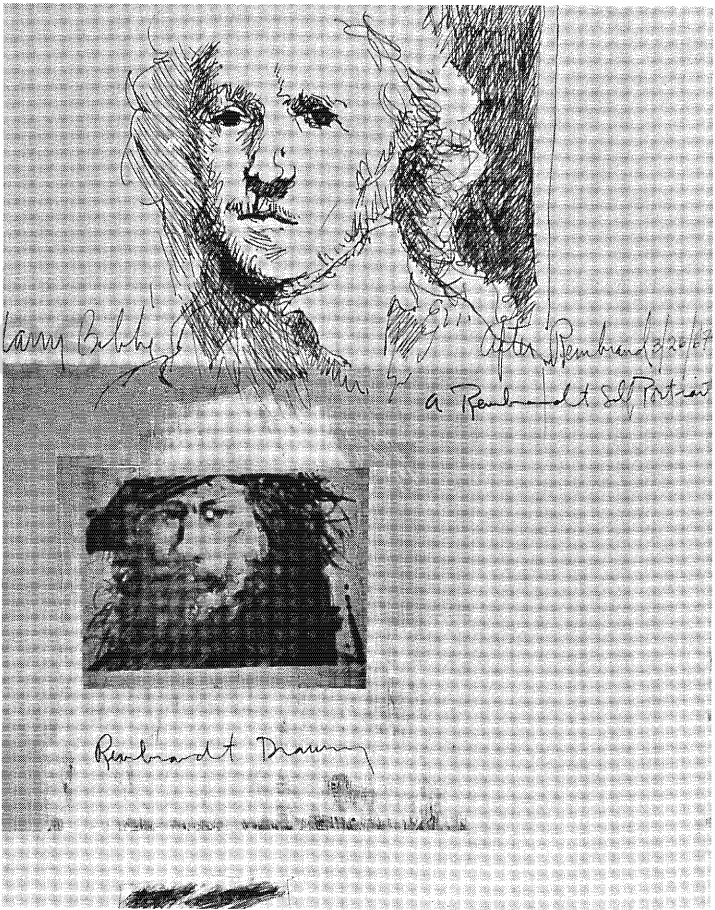 Larry
After Rembrand 3/26/67
a Rembrandt Self Portrait
Rembrandt Drawing